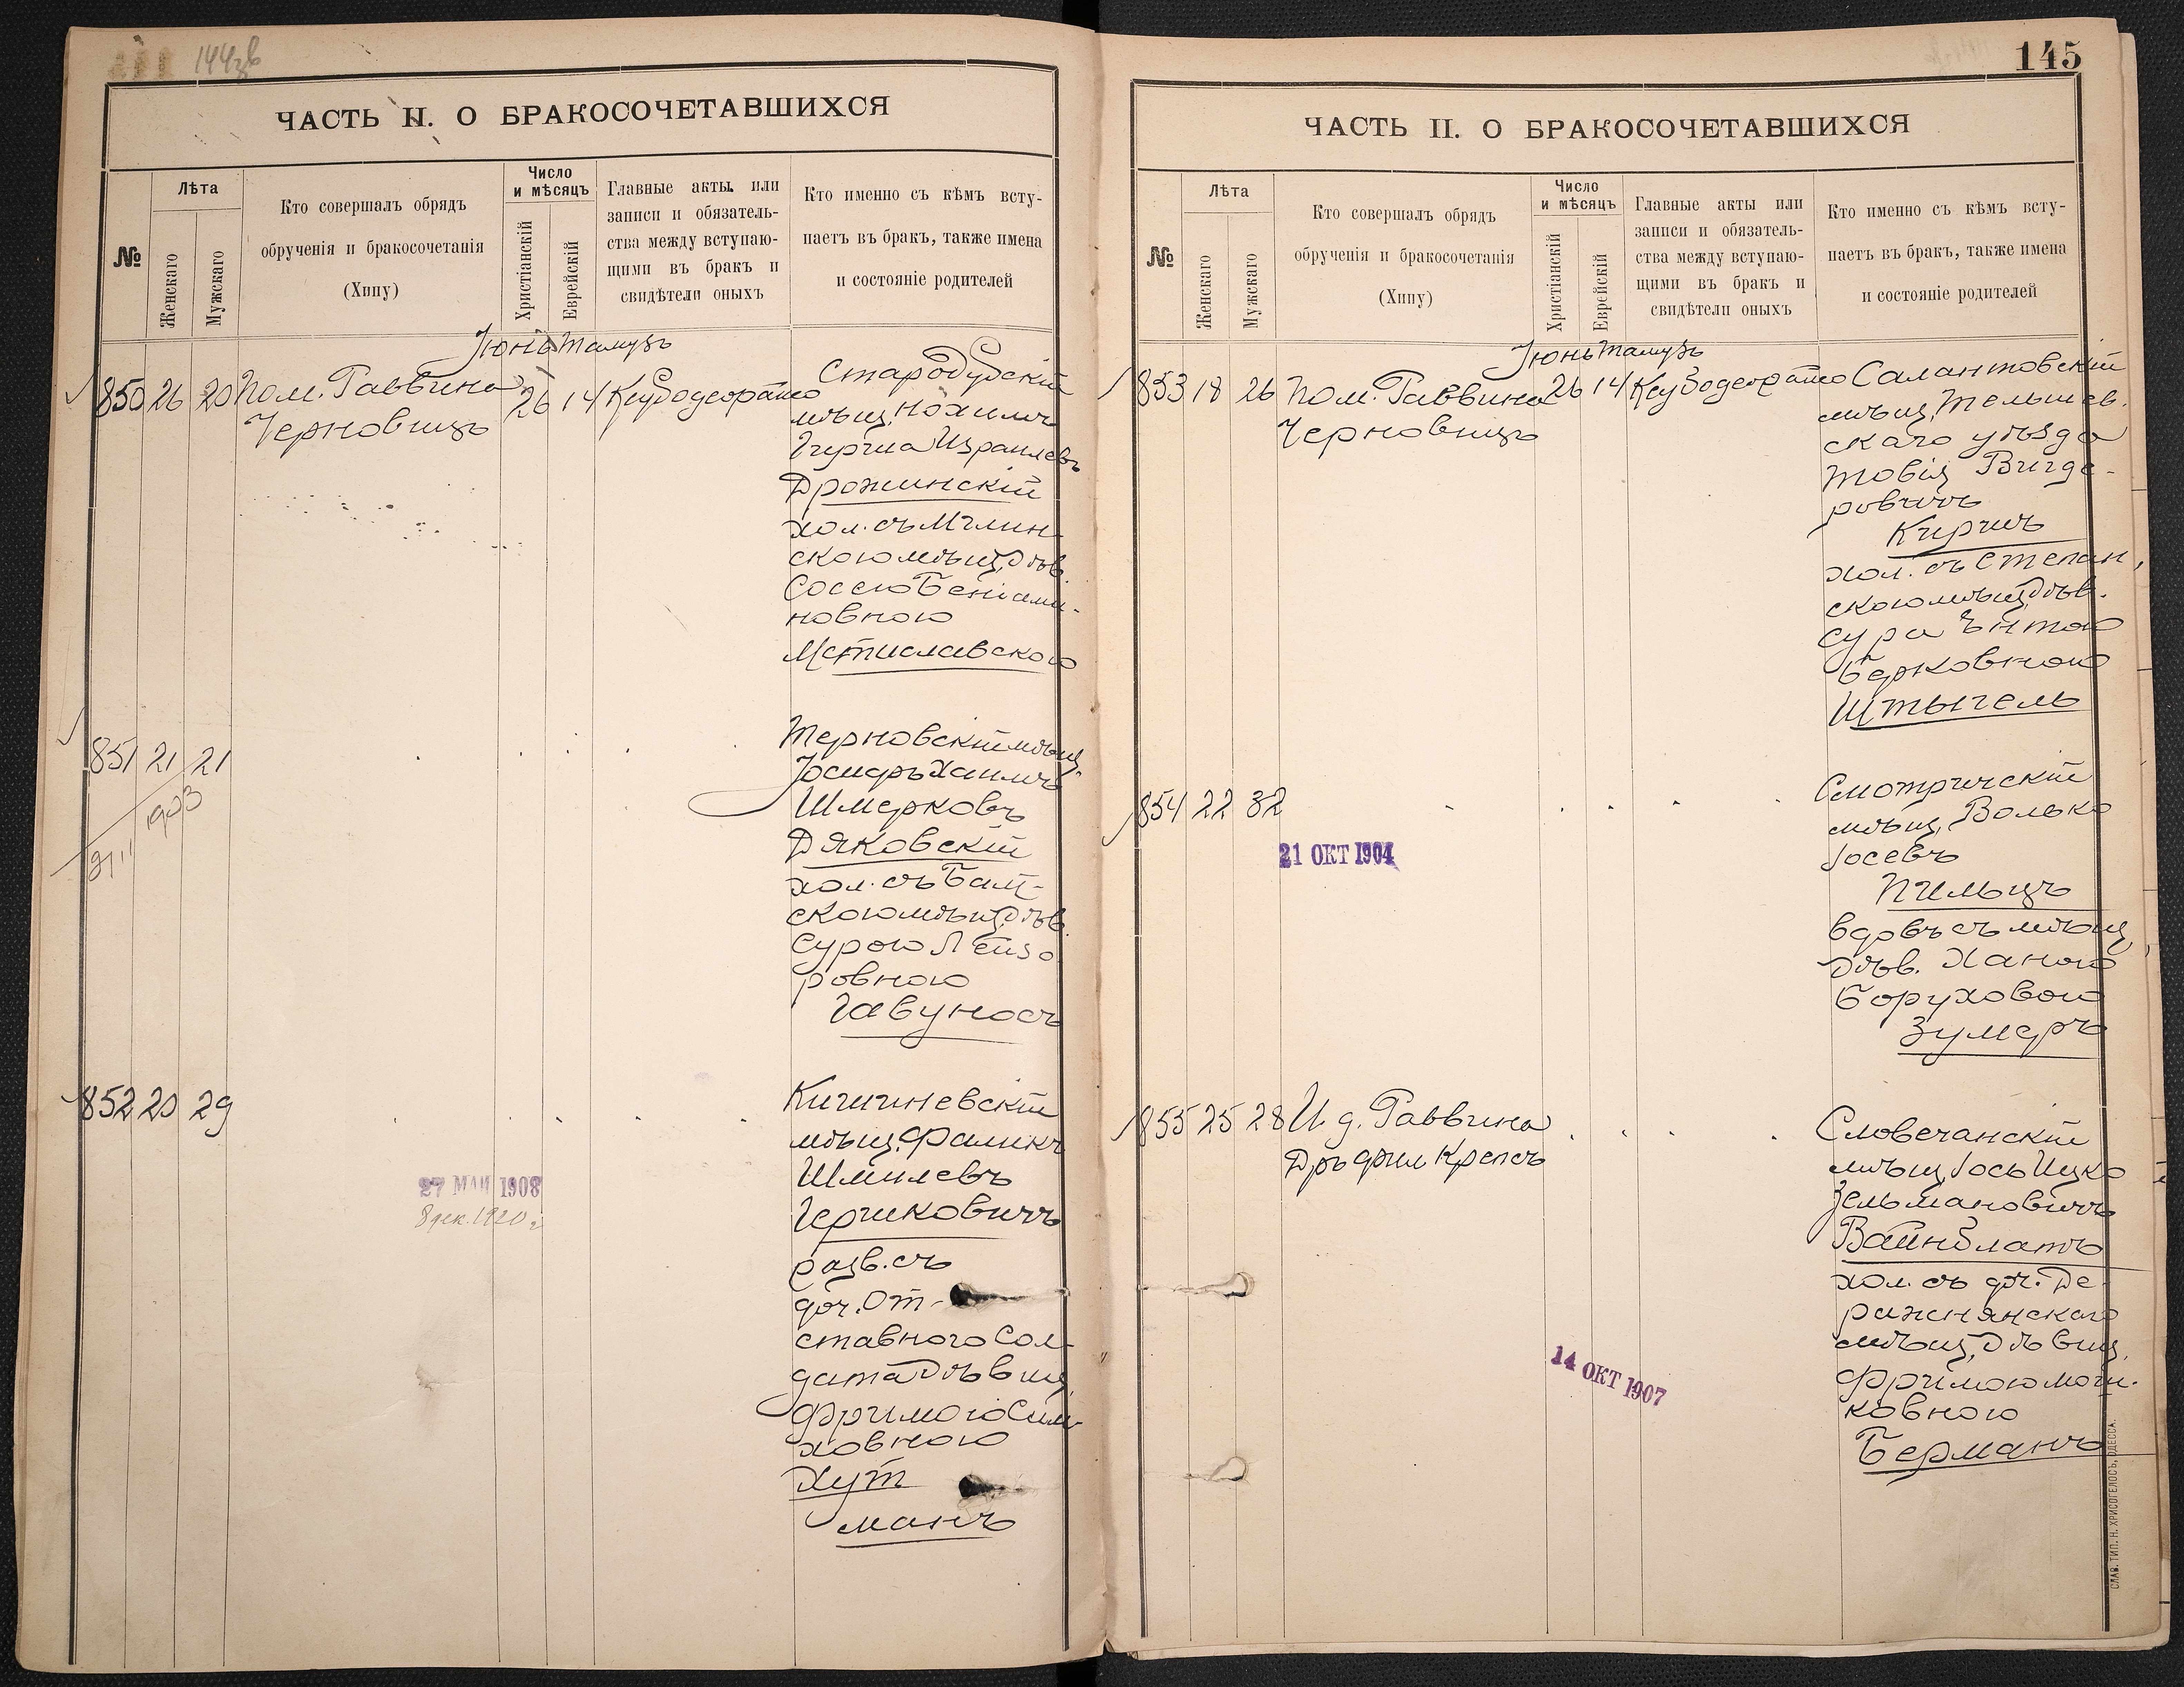 144 зв
ЧАСТЬ II. О БРАКОСОЧЕТАВШИХСЯ
№
Лѣта
Женскаго
Мужскаго
Кто совершалъ обрядъ
обрученія и бракосочетанія
(Хипу)
Число
и мѣсяцъ
Христіанскій
Еврейскій
Главные акты или
записи и обязатель-
ства между вступаю-
щими въ бракъ и
свидѣтели оныхъ
Кто именно съ кѣмъ всту-
паетъ въ бракъ, также имена
и состояніе родителей
Іюнь Тамузъ
850 26 20 Пом. Раввина 26 14
Черновицъ
Стародубскій
мѣщ. Нохимъ
Гирша Израилевъ
Дрожинскій
хол. съ Мглин-
скою мѣщ. дѣв.
Сосею Беніами-
новною
Мстиславскою
851 21 21
1903
Терновскій мѣщ.
Іосифъ Хаимъ
Шмерковъ
Дяковскій
хол. съ Балт-
скою мѣщ. дѣв.
Сурою Лейзо
ровною
Гавуносъ
852 20 29
27 МАЙ 1908
8 дек. 1920 г.
Кишиневскій
мѣщ. Фаликъ
Шмилевъ
Гершковичъ
разв. съ
доч. От-
ставного Сол-
дата дѣвиц.
Фримою Сим-
ховною
Хут
манъ
145
ЧАСТЬ II. О БРАКОСОЧЕТАВШИХСЯ
№
Лѣта
Женскаго
Мужскаго
Кто совершалъ обрядъ
обрученія и бракосочетанія
(Хипу)
Число
и мѣсяцъ
Христіанскій
Еврейскій
Главные акты или
записи и обязатель-
ства между вступаю-
щими въ бракъ и
свидѣтели оныхъ
Кто именно съ кѣмъ всту-
паетъ въ бракъ, также имена
и состояніе родителей
Іюнь Тамузъ
853 18 26 Пом. Раввина 26 14
Черновицъ
Салантовскій
мѣщ. Тельшев.
скаго уѣзда
Товія Вигде-
ровичъ
Киричъ
хол. съ Степан,
скою мѣщ. дѣв.
Сура Энтою
Берковною
Штычель
854 22 32
21 ОКТ 1904
Смотричскій
мѣщ. Волько
Іосевъ
Пильцъ
вдовъ съ мѣщ.
дѣв. Ханою
Боруховою
Зумеръ
855 25 28 И. д. Раввина
Дръ фил Крепсъ
14 ОКТ 1907
Словечанскій
мѣщ. Іось Ицко
Зельмановичъ
Вайнблатъ
хол. съ доч. Де-
ражнянскаго
мѣщ. дѣвиц.
Фримою Мош-
ковною
Берманъ
СЛАВ. ТИП. Н. ХРИСОГЕЛОСЪ, ОДЕССА.